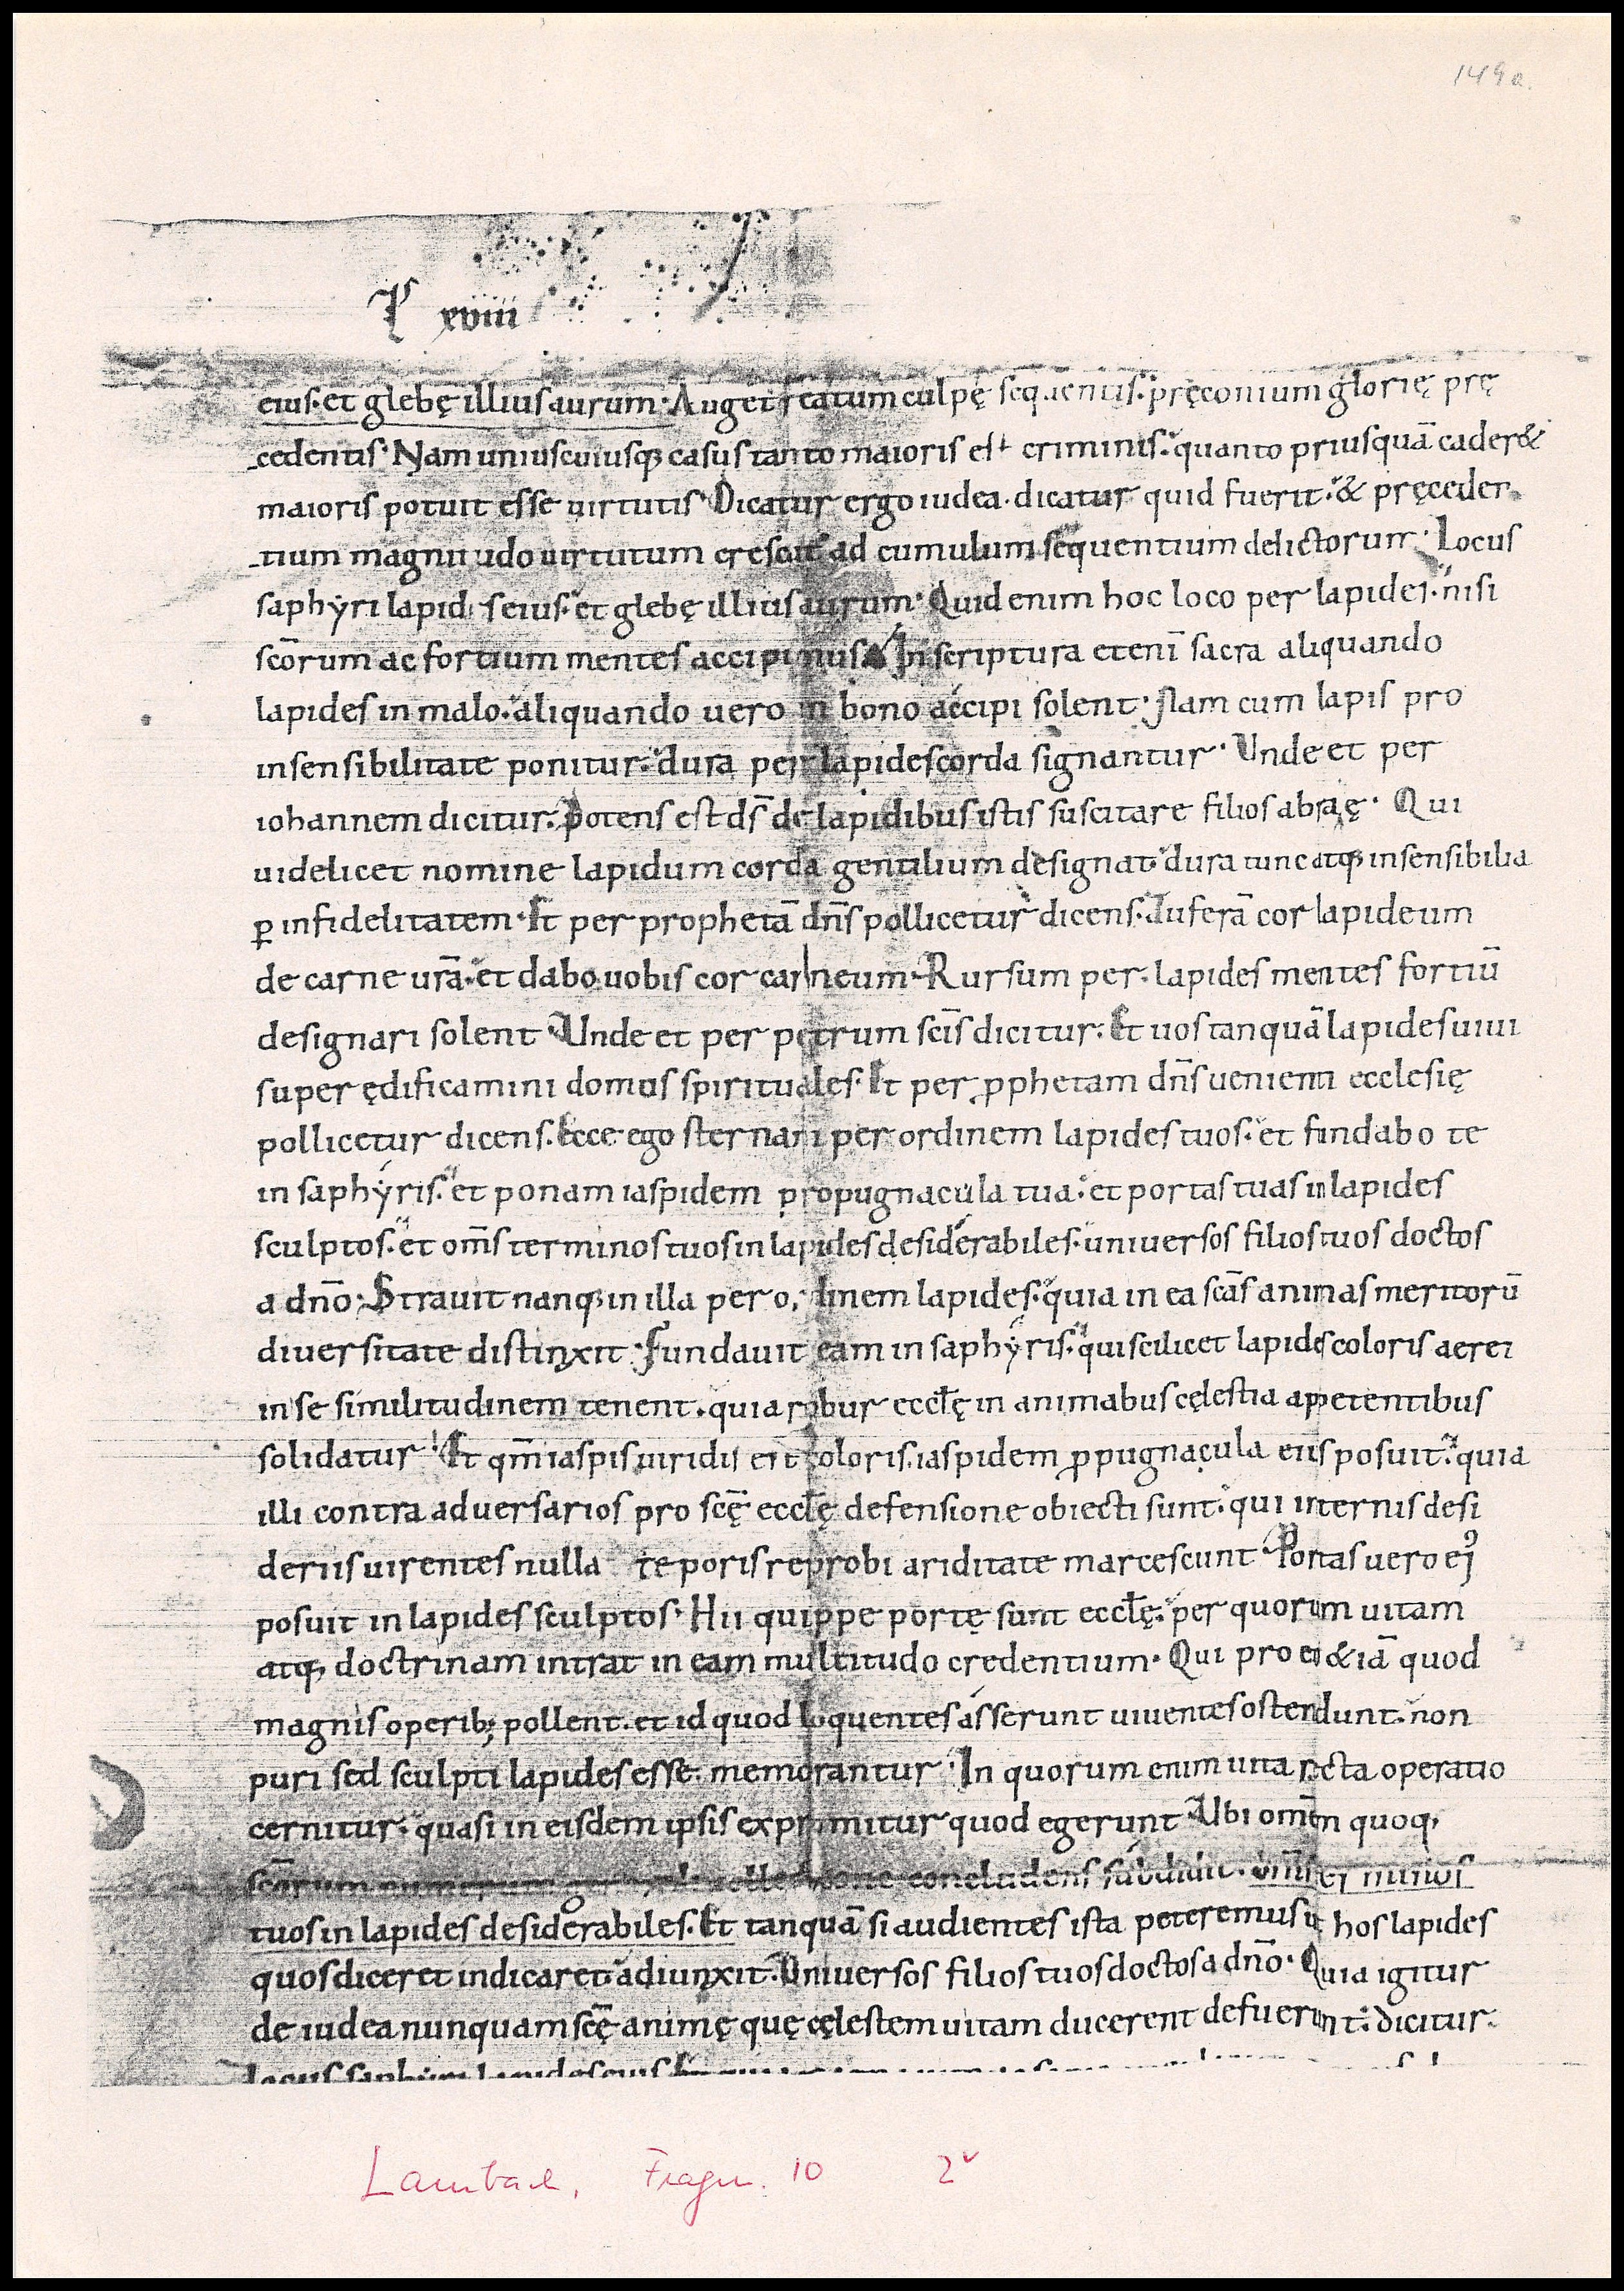 149a.
P xviii
eius. et glebę illius aurum. Auget reatum culpę sequentis. pręconium glorię prę
cedentis. Nam uniuscuiusq; casus tanto maioris est criminis. quanto priusquā cader&
maioris potuit esse uirtutis. Dicatur ergo iudea. dicatur quid fuerit. & pręceden
tium magnitudo uirtutum crescat ad cumulum sequentium delictorum. Locus
saphyri lapides eius. et glebę illius aurum. Quid enim hoc loco per lapides. nisi
scōrum ac fortium mentes accipimus. In scriptura etenī sacra aliquando
lapides in malo. aliquando uero in bono accipi solent. Nam cum lapis pro
insensibilitate ponitur. dura per lapides corda signantur. Unde et per
iohannem dicitur. Potens est ds̄ de lapidibus istis suscitare filios abraę. Qui
uidelicet nomine lapidum corda gentilium designat dura tunc atq; insensibilia
ꝑ infidelitatem. Et per prophetā dn̄s pollicetur dicens. Auferā cor lapideum
de carne ur̄a. et dabo uobis cor carneum. Rursum per lapides mentes fortiū
designari solent. Unde et per petrum scīs dicitur. Et uos tanquā lapides uiui
super ędificamini domus spirituales. Et per ꝓphetam dn̄s uenienti ecclesię
pollicetur dicens. Ecce ego sternam per ordinem lapides tuos. et fundabo te
in saphyris. et ponam iaspidem propugnacula tua. et portas tuas in lapides
sculptos. et om̄s terminos tuos in lapides desiderabiles. uniuersos filios tuos doctos
a dn̄o. Strauit nanq; in illa per ordinem lapides. quia in ea scās animas meritorū
diuersitate distinxit. Fundauit eam in saphyris. qui scilicet lapides coloris aerei
in se similitudinem tenent. quia robur eccłę in animabus cęlestia appetentibus
solidatur. Et qm̄ iaspis uiridis est coloris. iaspidem ꝓpugnacula eius posuit. quia
illi contra aduersarios pro scę̄ eccłę defensione obiecti sunt. qui internis desi
deriis uirentes nulla te poris reprobi ariditate marcescunt. Portas uero eiꝰ
posuit in lapides sculptos. Hii quippe portę sunt eccłę. per quorum uitam
atq; doctrinam intrat in eam multitudo credentium. Qui pro eo &iā quod
magnis operib; pollent. et id quod loquentes asserunt uiuentes ostendunt. non
puri sed sculpti lapides esse memorantur. In quorum enim uita recta operatio
cernitur. quasi in eisdem ipsis exprimitur quod egerunt. Ubi omēn quoq;
scōrum numerum concludens subdidit. Om̄s terminos
tuos in lapides desiderabiles. Et tanquā si audientes ista peteremus ut hos lapides
quos diceret indicaret. adiunxit. Uniuersos filios tuos doctos a dn̄o. Quia igitur
de iudea nunquam scę̄ animę quę cęlestem uitam ducerent defuerunt. dicitur.
locus saphyri lapides eius
Lambach, Fragm. 10 2v